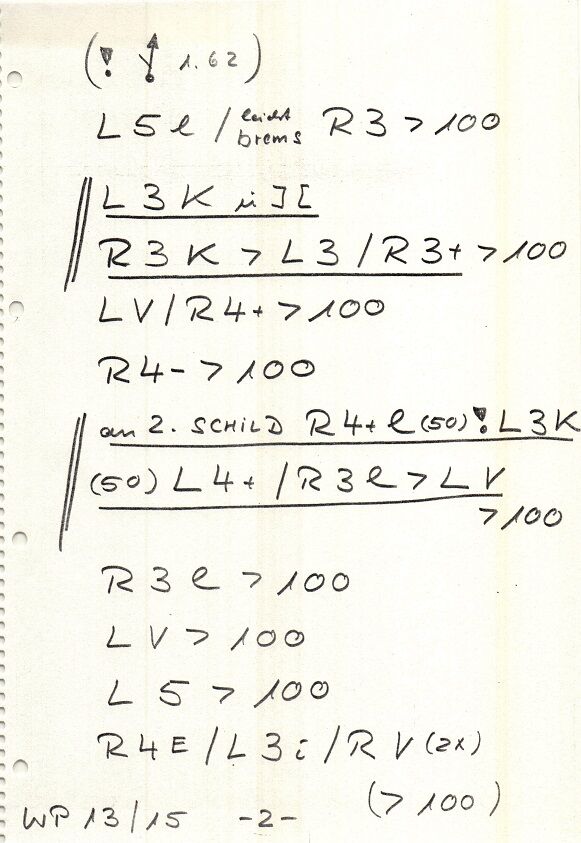 (! 1.62)
L5l / leicht brems R3 > 100
L3K in ][
R3K > L3 / R3+ > 100
LV / R4+ > 100
R4- > 100
an 2. SCHILD R4+ l (50) ! L3K
(50) L4+ / R3l > LV
> 100
R3l > 100
LV > 100
L5 > 100
R4E / L3i / RV (2x)
(> 100)
WP 13/15 -2-